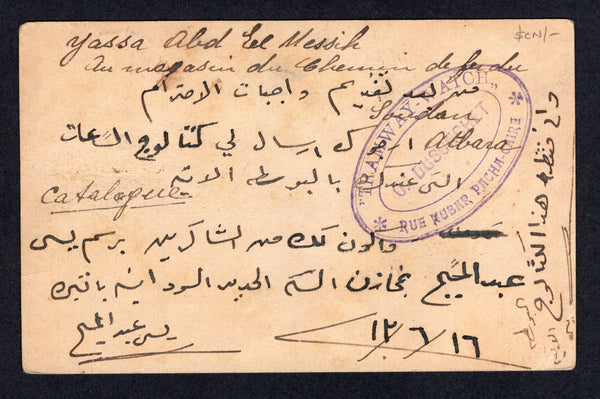 $CN/-
Yassa Abd El Messih
Au magasin du Chemin de fer du
Soudan
Atbara
من بعد تقديم واجبات الاحترام
ارجوك ارسال لي كتالوج الساعات
التى عندك بالبوسطه الاتيه
Catalogue
واكون لك من الشاكرين برسم يسى
عبد المسيح بمخازن السكه الحديد السودانيه باتبره
يسى عبد المسيح
١٦/٦/١٢
"TRAMWAY-WATCH"
RUE NUBAR PACHA-CAIRE
هذا الكتالوج